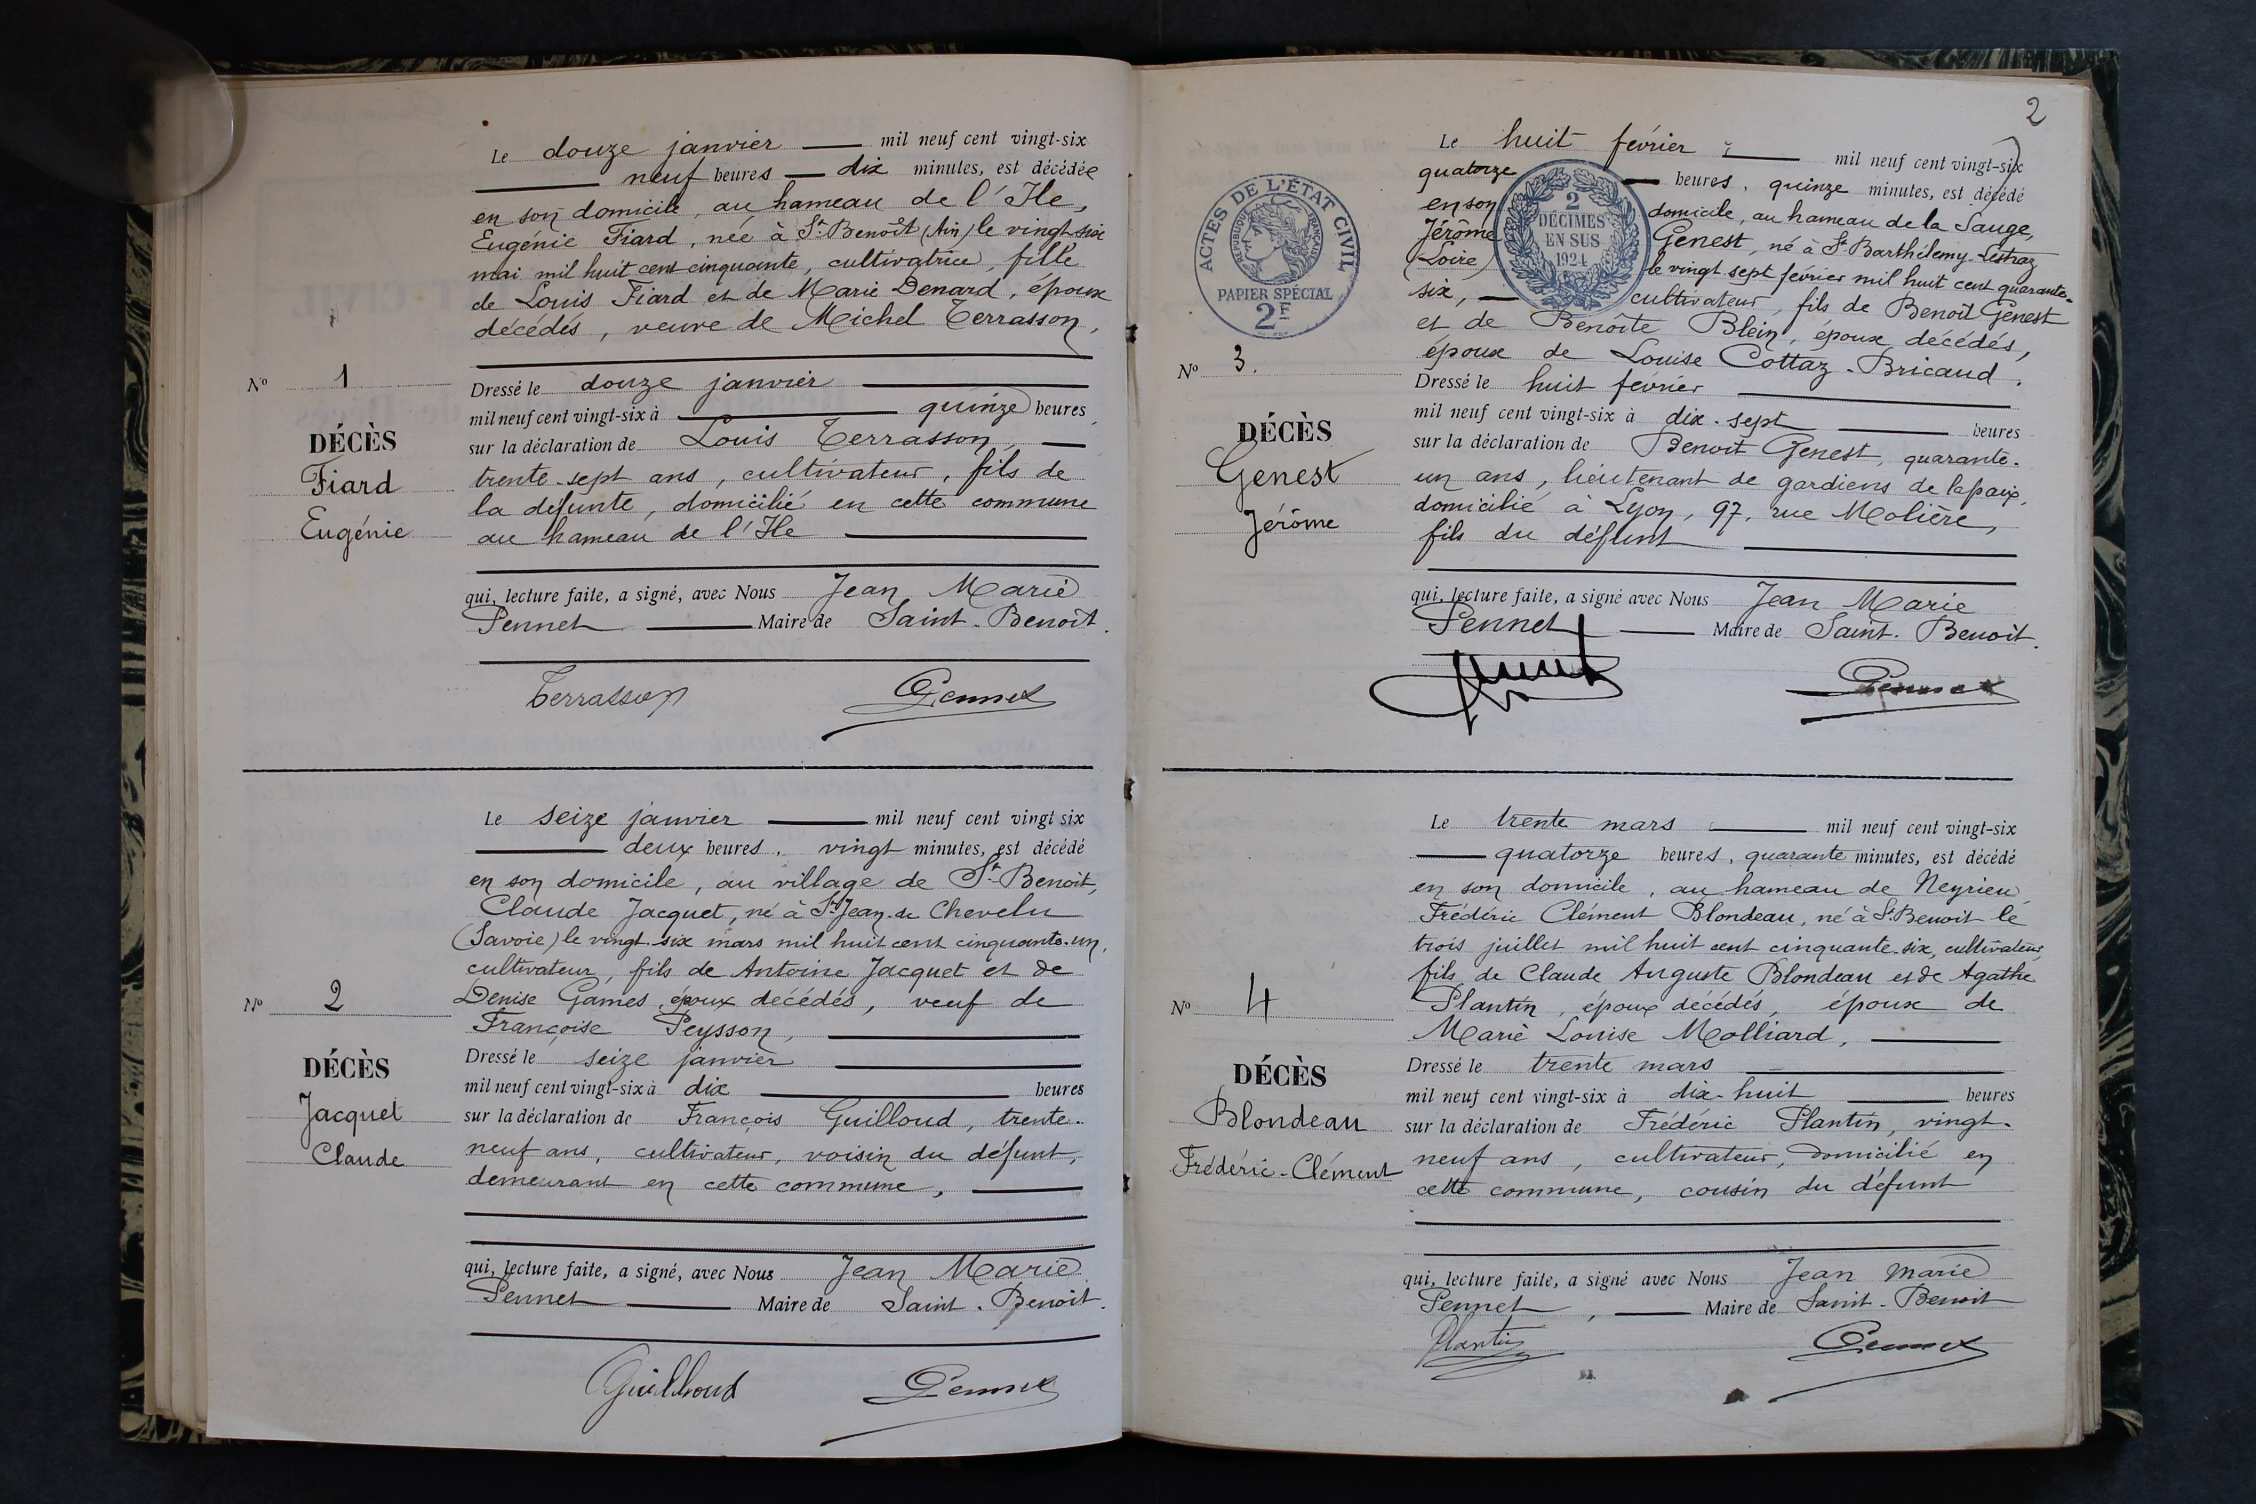 Le douze janvier mil neuf cent vingt-six
neuf heures dix minutes, est décédée
en son domicile, au hameau de l'Ile,
Eugénie Fiard, née à St Benoît (Ain) le vingt-six
mai mil huit cent cinquante, cultivatrice, fille
de Louis Fiard et de Marie Denard, époux
décédés, veuve de Michel Terrasson,
No 1
DÉCÈS
Fiard
Eugénie
Dressé le douze janvier
mil neuf cent vingt-six à quinze heures
sur la déclaration de Louis Terrasson,
trente-sept ans, cultivateur, fils de
la défunte, domicilié en cette commune
au hameau de l'Ile
qui, lecture faite, a signé, avec Nous Jean Marie
Pennet Maire de Saint-Benoît.
Terrasson Pennet
Le seize janvier mil neuf cent vingt six
deux heures, vingt minutes, est décédé
en son domicile, au village de St-Benoit,
Claude Jacquet, né à St Jean-de Chevelu
(Savoie) le vingt-six mars mil huit cent cinquante-un,
cultivateur, fils de Antoine Jacquet et de
Denise Gámes, époux décédés, veuf de
Françoise Peysson,
No 2
DÉCÈS
Jacquet
Claude
Dressé le seize janvier
mil neuf cent vingt-six à dix heures
sur la déclaration de François Guilloud, trente-
neuf ans, cultivateur, voisin du défunt,
demeurant en cette commune,
qui, lecture faite, a signé, avec Nous Jean Marie
Pennet Maire de Saint-Benoît.
Guilloud Pennet
2
ACTES DE L'ÉTAT CIVIL
RÉPUBLIQUE FRANÇAISE
PAPIER SPÉCIAL
2F
2
DÉCIMES
EN SUS
1924
Le huit février mil neuf cent vingt-six
quatorze heures, quinze minutes, est décédé
en son domicile, au hameau de la Sauge,
Jérôme Genest, né à St Barthélemy-Lestraz
(Loire) le vingt sept février mil huit cent quarante-
six, cultivateur, fils de Benoît Genest
et de Benoîte Blein, époux décédés,
époux de Louise Cottaz-Bricaud.
No 3.
DÉCÈS
Genest
Jérôme
Dressé le huit février
mil neuf cent vingt-six à dix-sept heures
sur la déclaration de Benoît Genest, quarante-
un ans, lieutenant de gardiens de la paix,
domicilié à Lyon, 97, rue Molière,
fils du défunt
qui, lecture faite, a signé avec Nous Jean Marie
Pennet Maire de Saint-Benoît.
Pennet
Le trente mars mil neuf cent vingt-six
quatorze heures, quarante minutes, est décédé
en son domicile, au hameau de Neyrieu
Frédéric Clément Blondeau, né à St Benoit le
trois juillet mil huit cent cinquante-six, cultivateur,
fils de Claude Auguste Blondeau et de Agathe
Plantin, époux décédés, époux de
Marie Louise Molliard,
No 4
DÉCÈS
Blondeau
Frédéric-Clément
Dressé le trente mars
mil neuf cent vingt-six à dix-huit heures
sur la déclaration de Frédéric Plantin, vingt-
neuf ans, cultivateur, domicilié en
cette commune, cousin du défunt
qui, lecture faite, a signé avec Nous Jean Marie
Pennet, Maire de Saint-Benoit
Plantin Pennet